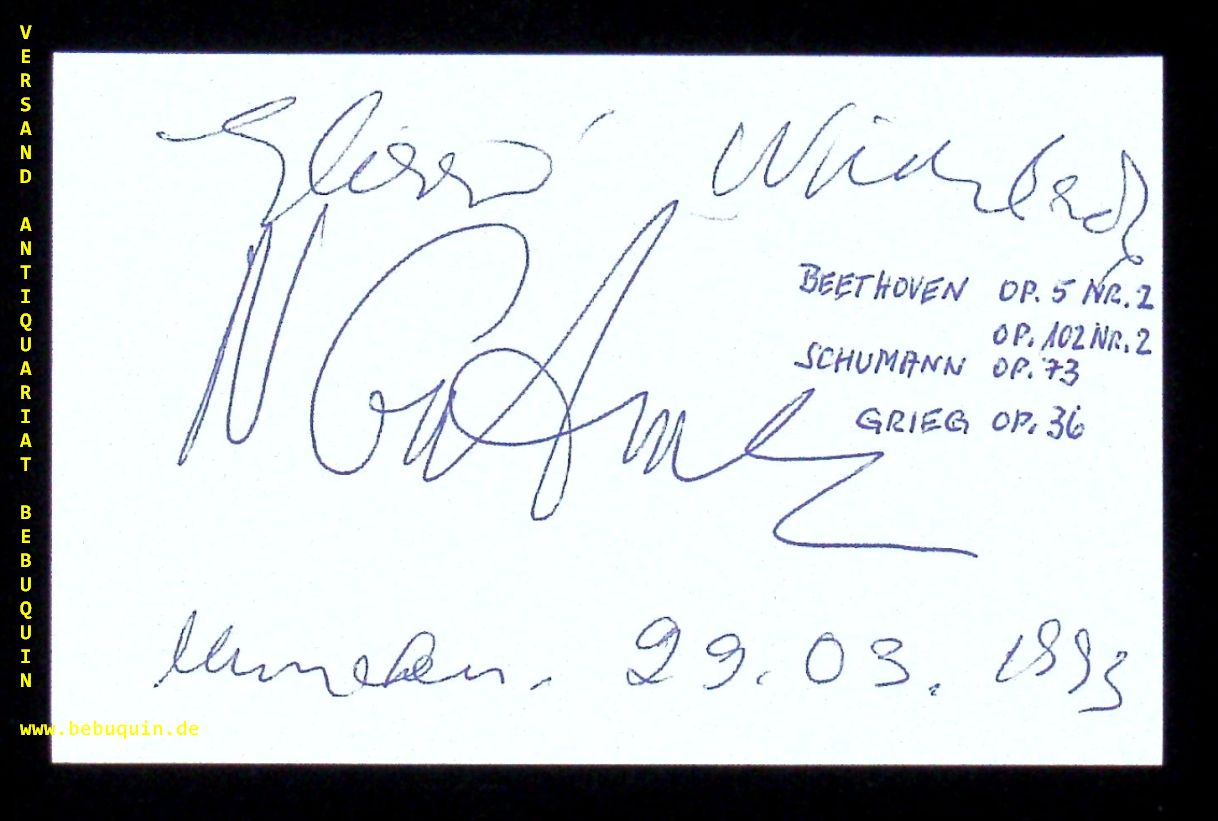 VERSAND ANTIQUARIAT BEBUQUIN
BEETHOVEN OP. 5 NR. 2
OP. 102 NR. 2
SCHUMANN OP. 73
GRIEG OP. 36
München. 29.03.1993
www.bebuquin.de